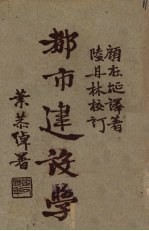 顾在埏譯著
陸丹林校訂
都市建設学
葉恭綽署